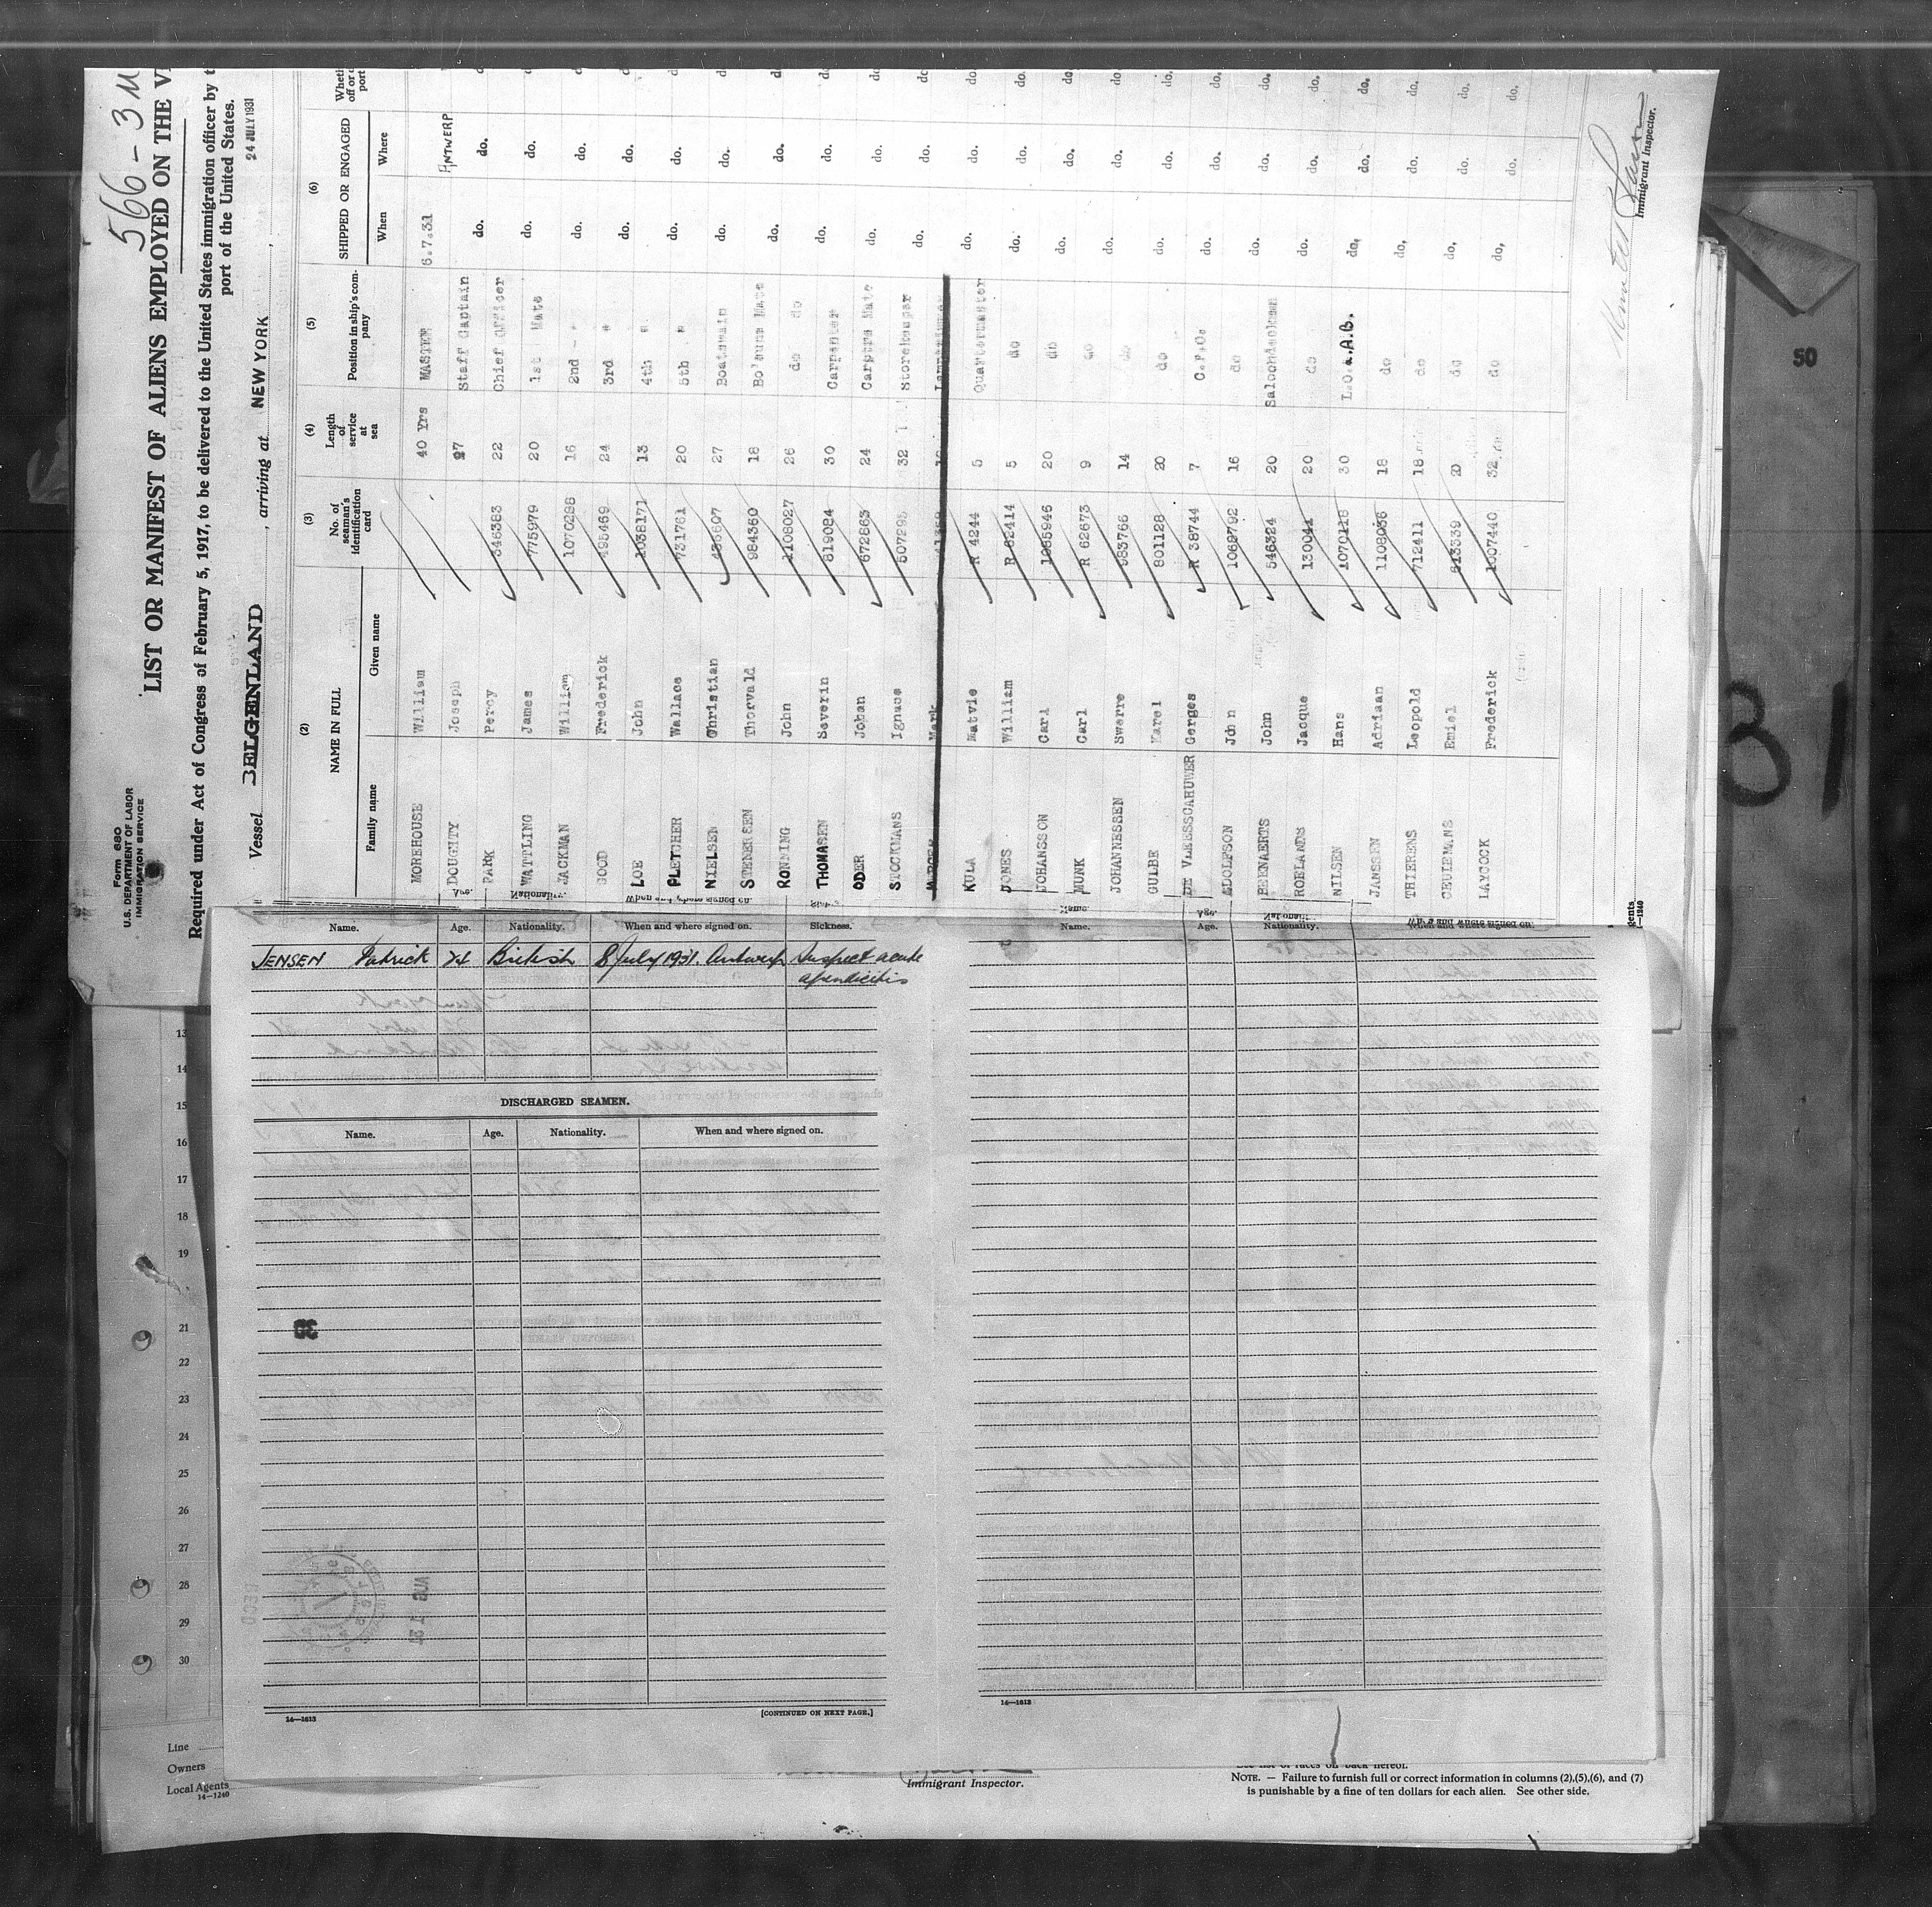 566-3
Form 680
U.S. DEPARTMENT OF LABOR
IMMIGRATION SERVICE
LIST OR MANIFEST OF ALIENS EMPLOYED ON THE
Required under Act of Congress of February 5, 1917, to be delivered to the United States immigration officer by
port of the United States.
Vessel BELGENLAND, arriving at NEW YORK, 24 JULY 1931
(2) (3) (4) (5) (6)
NAME IN FULL No. of seaman's identification card Length of service at sea Position in ship's company SHIPPED OR ENGAGED
Family name Given name When Where
MOREHOUSE William 40 Yrs MASTER 6.7.31 ANTWERP
DOUGHTY Joseph 27 Staff Captain do. do.
PARK Percy 346383 22 Chief Officer do. do.
WATTLING James 775979 20 1st Mate do. do.
JACKMAN William 1070288 16 2nd " do. do.
GOOD Frederick 495469 24 3rd " do. do.
LOE John 1038171 13 4th " do. do.
PLATCHER Wallace 731761 20 5th " do. do.
NIELSEN Christian 27 Boatswain do. do.
STENERSEN Thorvald 984360 18 Bo'sunn Mate do. do.
RONNING John 1108027 26 do do do. do.
THOMASEN Severin 819084 30 Carpenter do. do.
ODER Johan 672863 24 Carptrs Mate do. do.
STOCKMANS Ignace 507295 32 Storekeeper do. do.
KULA Matvie R 4244 5 Quartermaster do. do.
JONES William R 62414 5 do do. do.
JOHANSSON Carl 20 do do. do.
MUNK Carl R 62673 9 do do. do.
JOHANNESSEN Swerre 983766 14 do do. do.
GULBE Karel 801128 20 do do. do.
DE VLEESSCAHUWER Gorges R 38744 7 C.P.Os do. do.
ADOLFSON John 1062792 16 do do. do.
BEENAERTS John 546324 20 Saloondeckman do. do.
ROELANDS Jacque 130041 20 do do. do.
NILSEN Hans 1070118 30 L.O.&.A.B. do. do.
JANSSEN Adriaan 1108036 18 do do. do.
THIERENS Leopold 712411 18 do do. do.
CEULEMANS Emiel 613339 20 do do. do.
LAYCOCK Frederick 1007440 32 do do. do.
Immigrant Inspector.
Name. Age. Nationality. When and where signed on. Sickness.
JENSEN Patrick 24 British 8 July 1931. Antwerp Suspect acute
apendicitis
DISCHARGED SEAMEN.
Name. Age. Nationality. When and where signed on.
14—1613
[CONTINUED ON NEXT PAGE.]
Name. Age. Nationality. When and where signed on.
14—1613
13
14
15
16
17
18
19
21
22
23
24
25
26
27
28
29
30
Line
Owners
Local Agents
14—1240
Immigrant Inspector.
NOTE. — Failure to furnish full or correct information in columns (2),(5),(6), and (7)
is punishable by a fine of ten dollars for each alien. See other side.
50
31